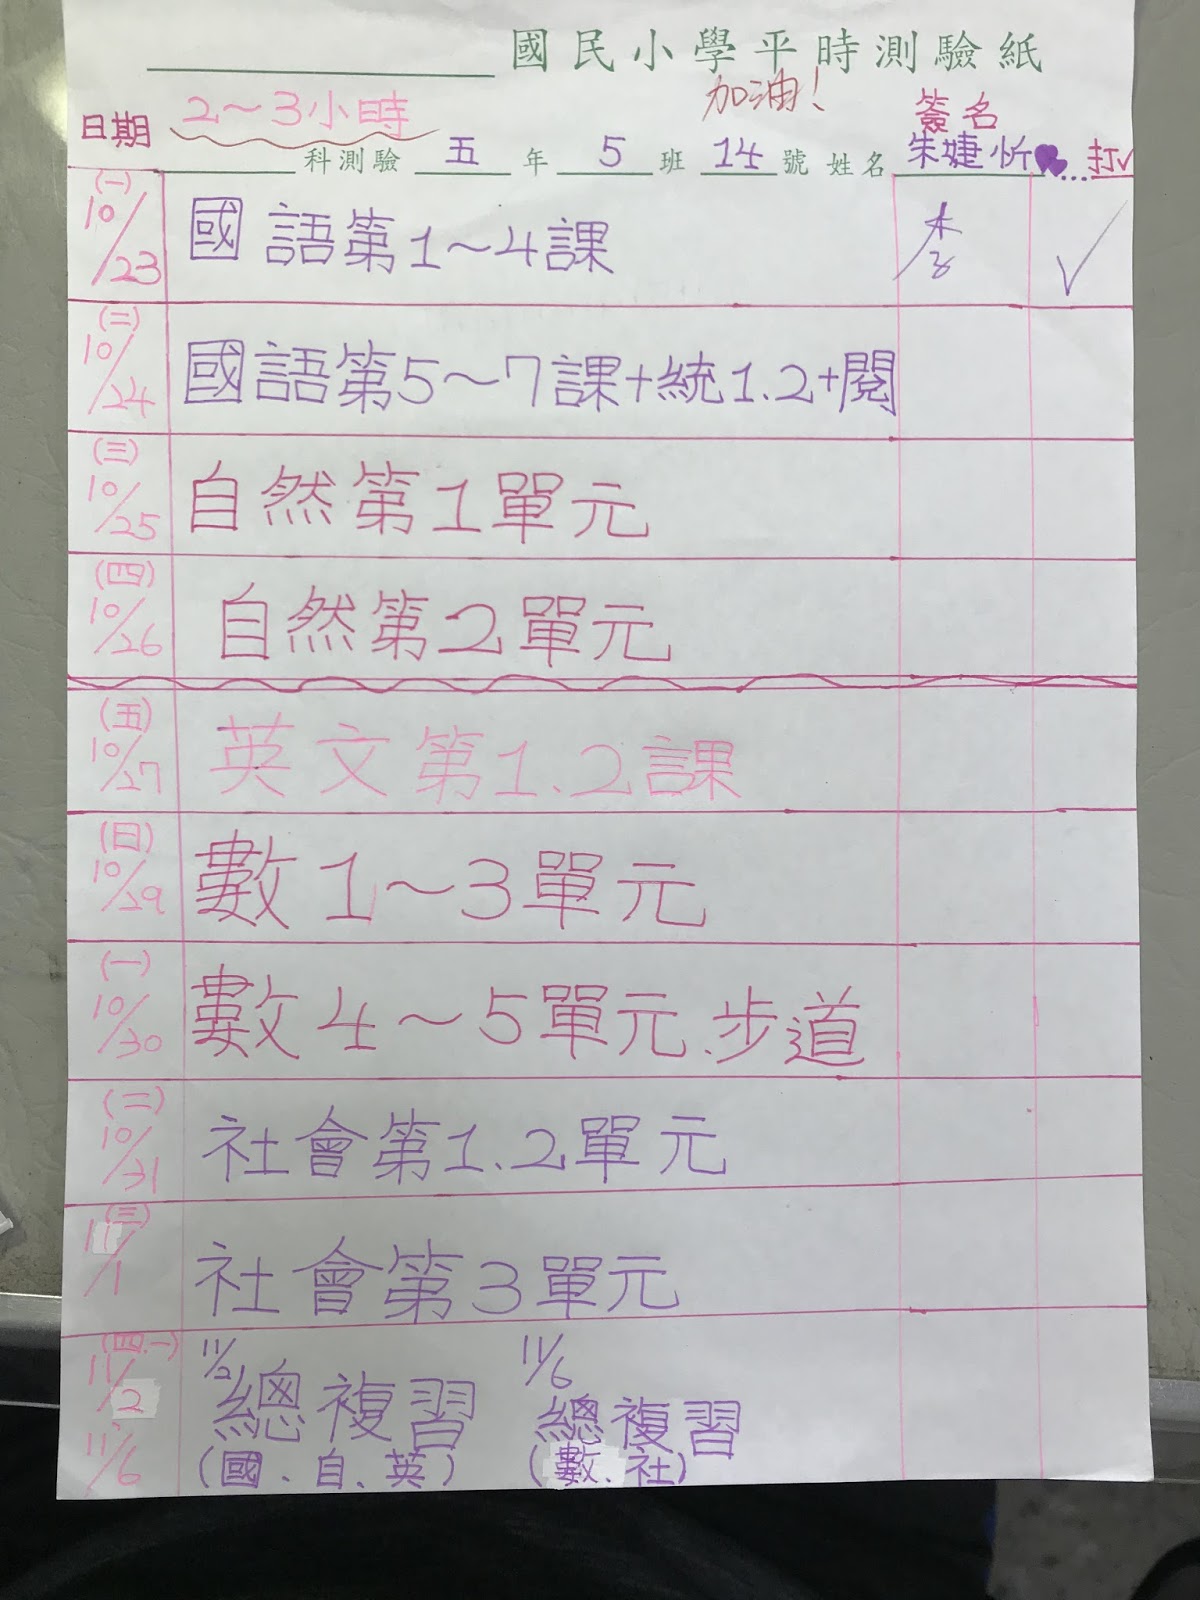 國民小學平時測驗紙
2～3小時 加油！ 簽名
日期 科測驗 五 年 5 班 14 號 姓名 朱婕忻 ...打✓
(一) 10/23 國語第1～4課 ✓
(二) 10/24 國語第5～7課+統1.2+閱
(三) 10/25 自然第1單元
(四) 10/26 自然第2單元
(五) 10/27 英文第1.2課
(日) 10/29 數1～3單元
(一) 10/30 數4～5單元、步道
(二) 10/31 社會第1、2單元
(三) 11/1 社會第3單元
(四、一) 11/2 11/2 總複習 11/6 總複習
11/6 (國、自、英) (數、社)